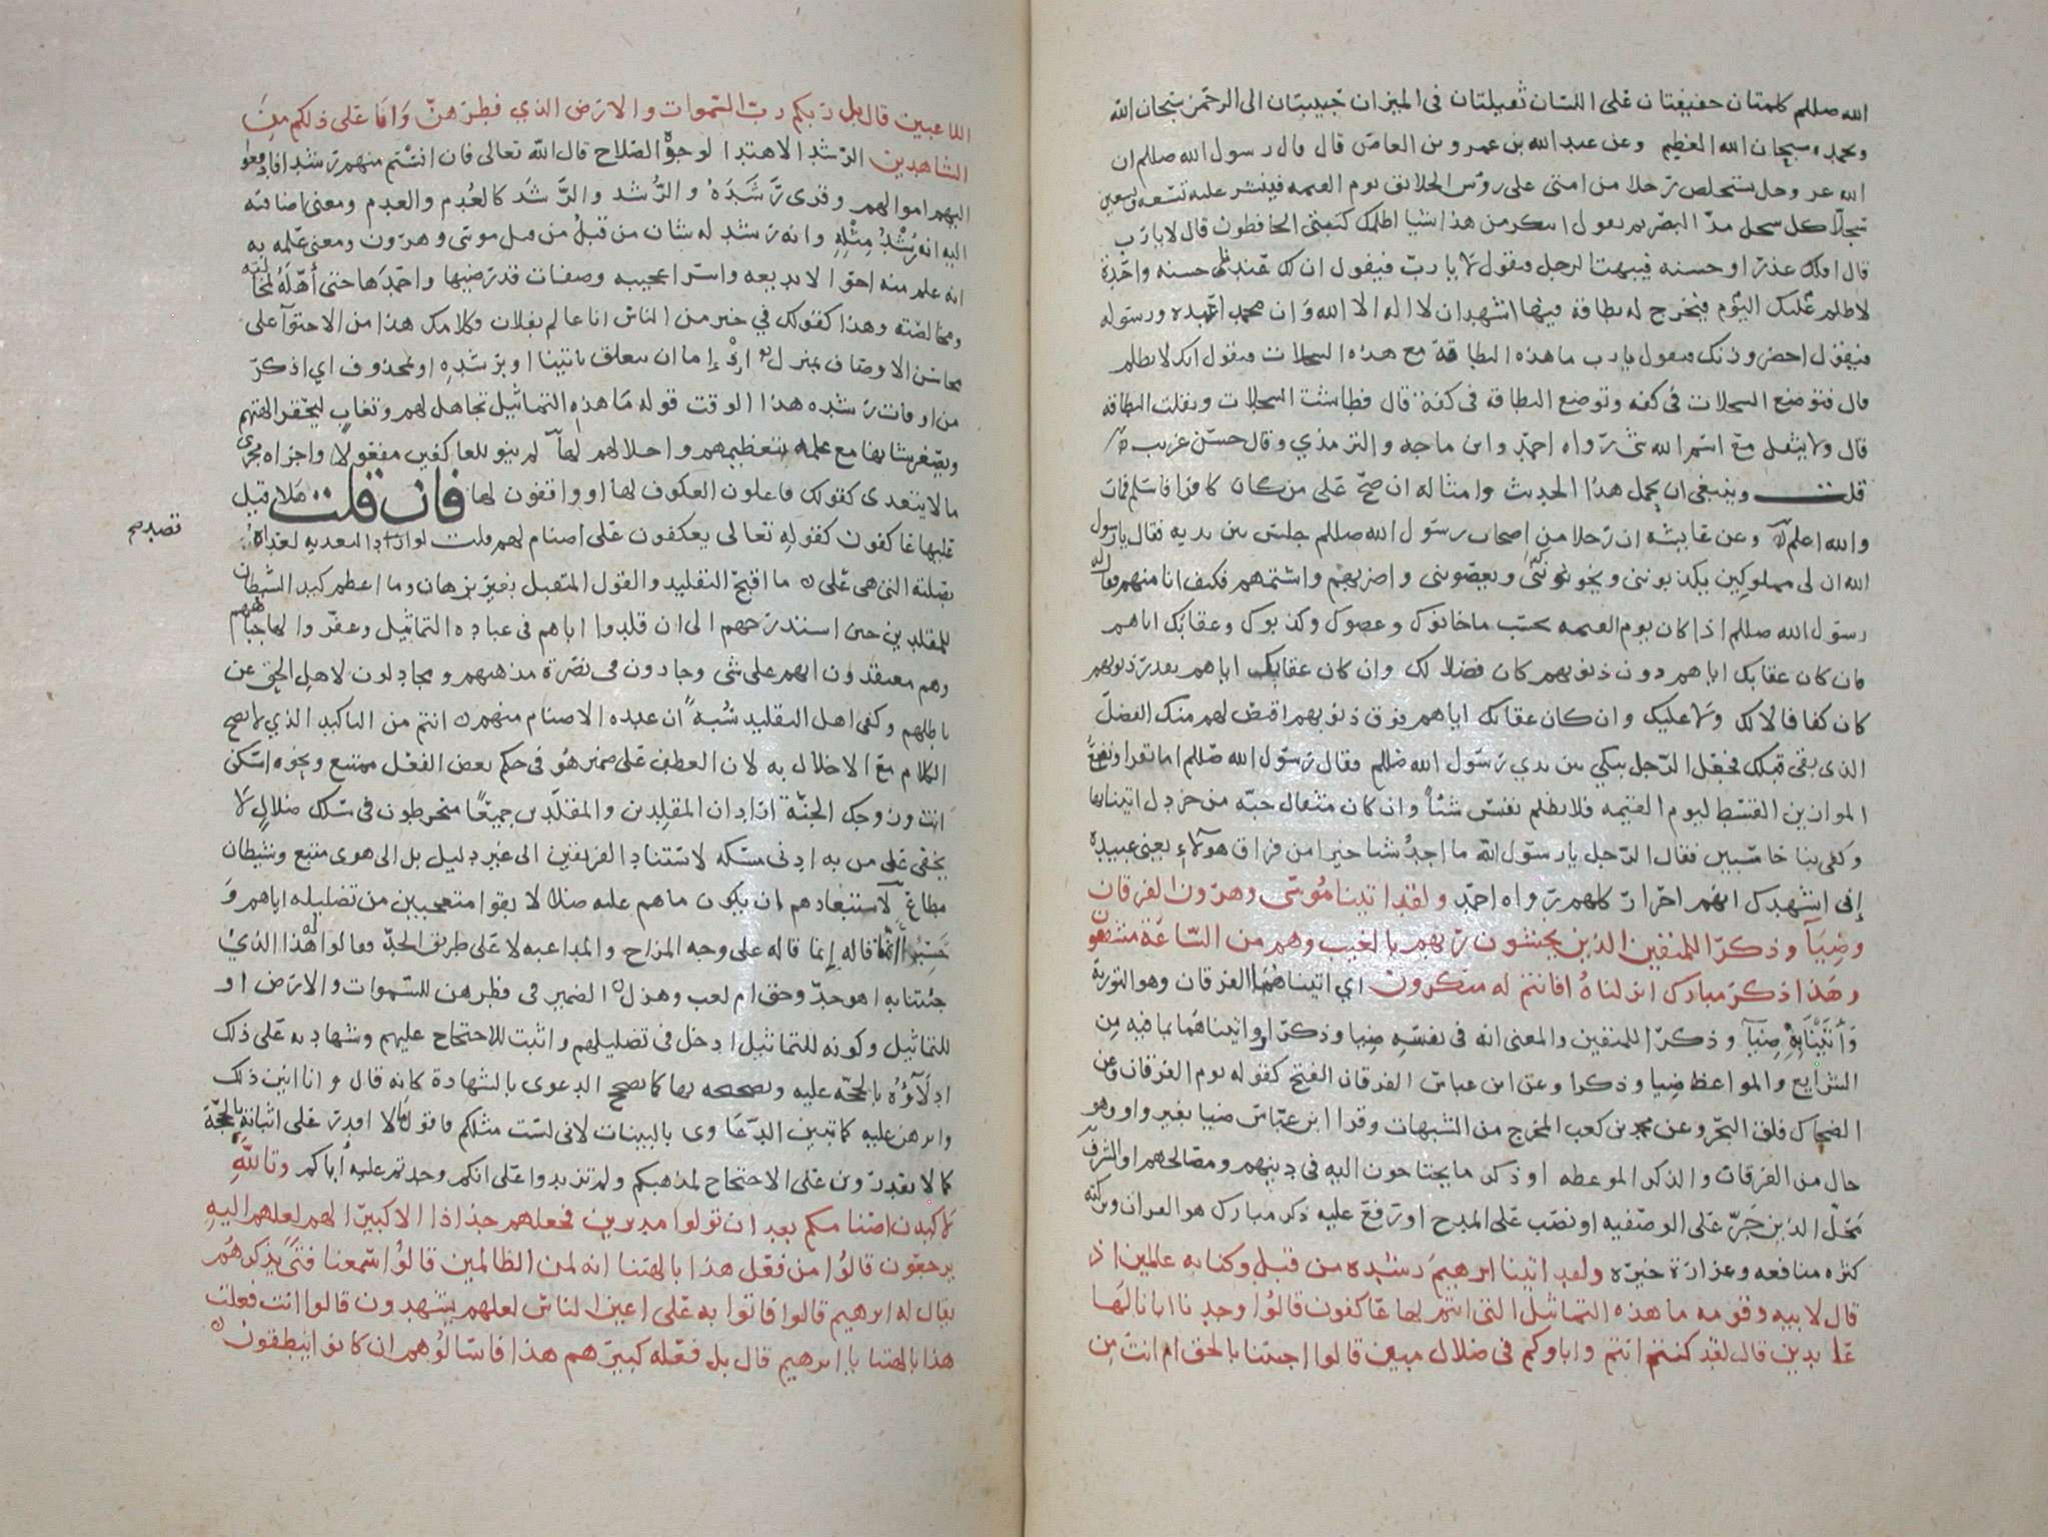 الله صللم كلمتان خفيفتان على اللسان ثقيلتان في الميزان حبيبتان الى الرحمن سبحان الله
وبحمده سبحان الله العظيم وعن عبد الله بن عمرو بن العاص قال قال رسول الله صللم ان
الله عز وجل يستخلص رجلا من امتي على روس الخلائق يوم القيمه فينشر عليه تسعه وتسعين
سجلا كل سجل مد البصر ثم يقول اتنكر من هذا شيا اظلمك كتبتي الحافظون قال لا يا رب
قال افلك عذر او حسنه فيبهت الرجل فيقول لا يا رب فيقول ان لك عندنا حسنه واحدة
لا ظلم عليك اليوم فيخرج له بطاقة فيها اشهد ان لا اله الا الله وان محمدا عبده ورسوله
فيقول احضر وزنك فيقول يا رب ما هذه البطاقة مع هذه السجلات فيقول انك لا تظلم
قال فتوضع السجلات في كفه وتوضع البطاقة في كفة قال فطاشت السجلات وثقلت البطاقه
قال ولا يثقل مع اسم الله شي رواه احمد وابن ماجه والترمذي وقال حسن غريب
قلت وينبغي ان يحمل هذا الحديث وامثاله ان صح على من كان كافرا فاسلم فمات
والله اعلم وعن عايشه ان رجلا من اصحاب رسول الله صللم جلس بين يديه فقال يا رسول
الله ان لي مملوكين يكذبونني ويخونونني ويعصونني واضربهم واشتمهم فكيف انا منهم فقال له
رسول الله صللم اذا كان يوم القيمه يحسب ما خانوك وعصوك وكذبوك وعقابك اياهم
فان كان عقابك اياهم دون ذنوبهم كان فضلا لك وان كان عقابك اياهم بقدر ذنوبهم
كان كفافا لا لك ولا عليك وان كان عقابك اياهم فوق ذنوبهم اقتص لهم منك الفضل
الذي بقي قبلك فجعل الرجل يبكي بين يدي رسول الله صللم فقال رسول الله صللم اما تقرا ونضع
الموازين القسط ليوم القيمه فلا تظلم نفس شيا وان كان مثقال حبه من خردل اتينا بها
وكفى بنا حاسبين فقال الرجل يا رسول الله ما اجد شيا خيرا من فراق هولاء يعني عبيده
إني اشهدك انهم احرار كلهم رواه احمد ولقد اتينا موسى وهرون الفرقان
وضيآ وذكرا للمتقين الذين يخشون ربهم بالغيب وهم من الساعة مشفقون
وهذا ذكر مبارك انزلناه افانتم له منكرون اي اتيناهما الفرقان وهو التورية
وأتينا به ضيآ وذكرا للمتقين والمعنى انه في نفسه ضيا وذكرا او اتيناهما بما فيه من
الشرايع والمواعظ ضيا وذكرا وعن ابن عباس الفرقان الفتح كقوله يوم الفرقان وعن
الضحاك فلق البحر وعن محمد بن كعب المخرج من الشبهات وقرا ابن عباس ضيا بغير واو وهو
حال من الفرقان والذكر الموعظه او ذكر ما يحتاجون اليه في دينهم ومصالحهم او الشرف
محل الذين جر على الوصفيه او نصب على المدح او رفع عليه ذكر مبارك هو القران وبركته
كثره منافعه وغزارة خيره ولقد اتينا ابرهيم رشده من قبل وكنا به عالمين اذ
قال لابيه وقومه ما هذه التماثيل التي انتم لها عاكفون قالوا وجدنا اباءنا لها
عابدين قال لقد كنتم انتم واباوكم في ضلال مبين قالوا اجئتنا بالحق ام انت من
اللاعبين قال بل ربكم رب السموات والارض الذي فطرهن وانا على ذلكم من
الشاهدين الرشد الاهتدا لوجوه الصلاح قال الله تعالى فان انستم منهم رشدا فادفعوا
اليهم اموالهم وقرى رشده والرشد والرشد كالعدم والعدم ومعنى اضافته
اليه انه رشد مثله وانه رشد له شان من قبل من قبل موسى وهرون ومعنى علمه به
انه علم منه احوالا بديعه واسرارا عجيبه وصفات قد رضيها واحمدها حتى أهله لمخالته
ومخالصته وهذا كقولك في خير من الناس انا عالم بفلان وكلامك هذا من الاحتوآ على
محاسن الاوصاف بمنزل إذ إما ان يتعلق باتينا او برشده او لمحذوف اي اذكر
من اوقات رشده هذا الوقت قوله ما هذه التماثيل تجاهل لهم وتغاب ليحقر الهتهم
ويصغر شانها مع علمه بتعظيمهم واجلالهم لها لم ينو للعاكفين مفعولا واجراه مجرى
ما لا يتعدى كقولك فاعلون العكوف لها او واقفون لها فان قلت هلا قيل
عليها عاكفون كقوله تعالى يعكفون على اصنام لهم قلت لو اراد التعديه لعداه
قصد صح
بصلته التي هي على ما اقبح التقليد والقول المتقبل بغير برهان وما اعظم كيد الشيطان
للمقلدين حين استدرجهم الى ان قلدوا اباهم في عباده التماثيل وعفروا لها جباههم
وهم معتقدون انهم على شي وجادون في نصرة مذهبهم ومجادلون لاهل الحق عن
باطلهم وكفى اهل التقليد سبه ان عبده الاصنام منهم انتم من التاكيد الذي لا يصح
الكلام مع الاخلال به لان العطف على ضمير هو في حكم بعض الفعل ممتنع ونحوه اسكن
انت وزوجك الجنة اراد ان المقلدين والمقلدين جميعا منخرطون في سلك ضلال لا
يخفى على من به ادنى مسكه لاستناد الفريقين الى غير دليل بل الى هوى متبع وشيطان
مطاع لاستبعادهم ان يكون ما هم عليه ضلالا بقوا متعجبين من تضليله اياهم و
حسبوا ان ما قاله إنما قاله على وجه المزاح والمداعبه لا على طريق الجد فقالوا له هذا الذي
جئتنا به اهو جد وحق ام لعب وهزل الضمير في فطرهن للسموات والارض او
للتماثيل وكونه للتماثيل ادخل في تضليلهم واثبت للاحتجاج عليهم وشهادته على ذلك
ادلآؤه بالحجه عليه وتصحيحه بها كما تصحح الدعوى بالشهادة كانه قال وانا ابين ذلك
وابرهن عليه كما تبين الدعاوى بالبينات لاني لست مثلكم فاقول ما لا اقدر على اثباته بالحجة
كما لا تقدرون على الاحتجاج لمذهبكم ولم تزيدوا على انكم وجدتم عليه أباكم وتالله
لاكيدن اصنامكم بعد ان تولوا مدبرين فجعلهم جذاذا الا كبيرا لهم لعلهم اليه
يرجعون قالوا من فعل هذا بالهتنا انه لمن الظالمين قالوا سمعنا فتى يذكرهم
يقال له ابرهيم قالوا فاتوا به على اعين الناس لعلهم يشهدون قالوا انت فعلت
هذا بالهتنا يا ابرهيم قال بل فعله كبيرهم هذا فاسالوهم ان كانوا ينطقون